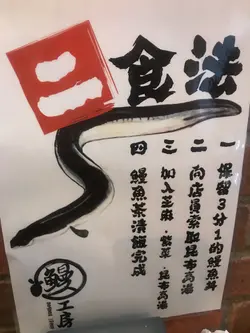 二食法
一 保留3分1的鰻魚丼
二 向店員索取昆布高湯
三 加入芝麻、紫菜、昆布高湯
四 鰻魚茶漬飯完成
鰻工房